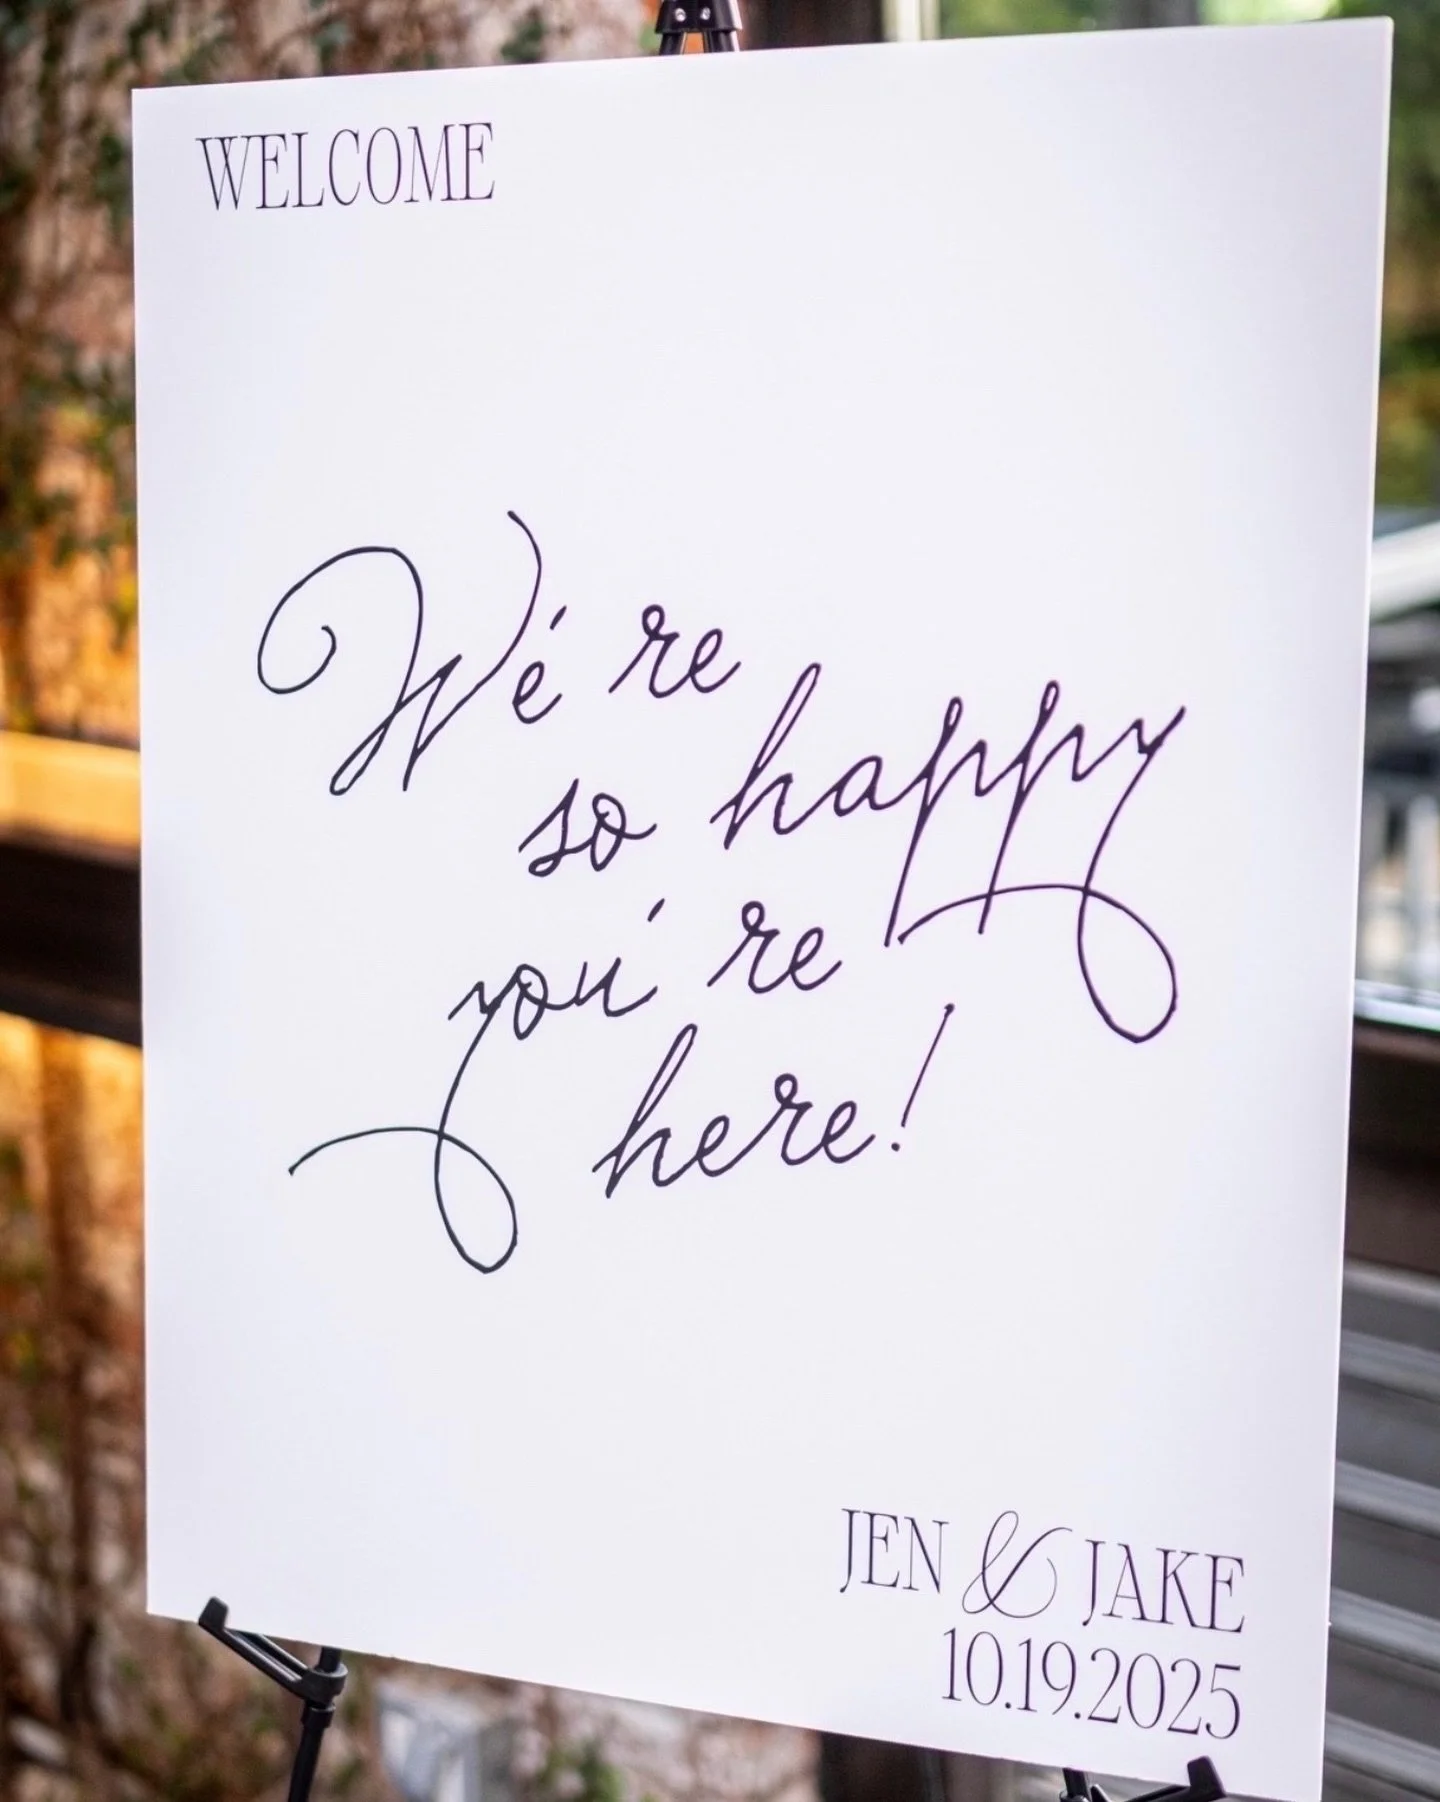 WELCOME
We're
so happy
you're
here!
JEN & JAKE
10.19.2025